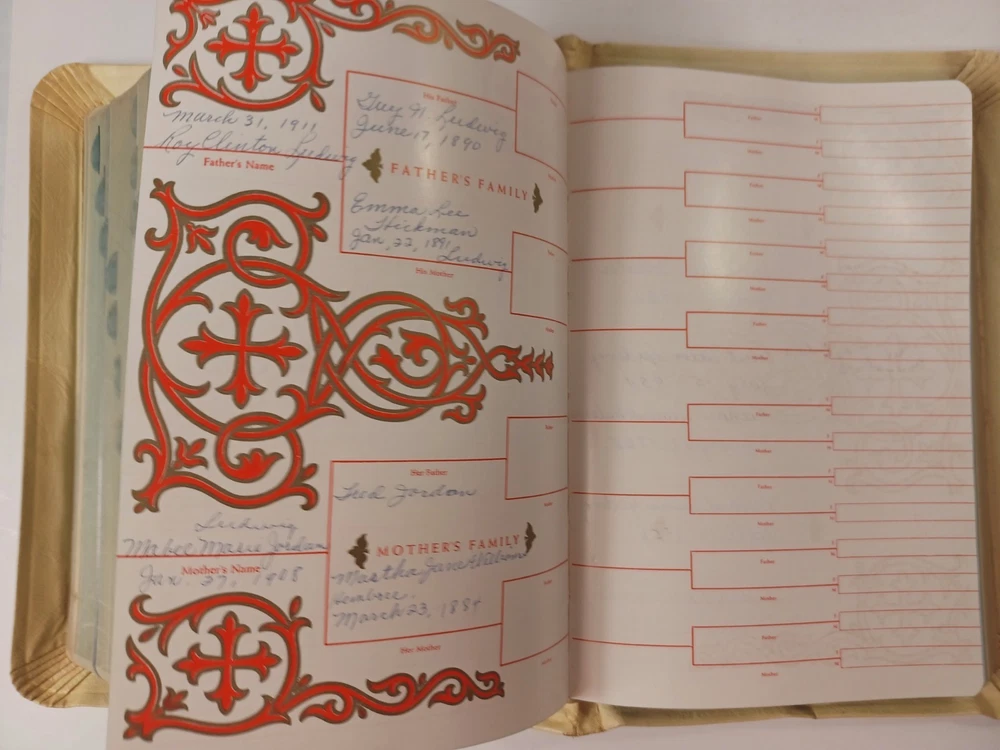 His Father
Guy H. Ludwig
June 17, 1890
March 31, 1911
Roy Clinton Ludwig
Father's Name
FATHER'S FAMILY
Emma Lee
Hickman
Jan, 22, 1891,
Ludwig
His Mother
Her Father
Fred Jordan
Ludwig
Mabel Marie Jordan
Mother's Name
Jan. 27, 1908
MOTHER'S FAMILY
Martha Jane
Hembree.
March 23, 1884
Her Mother
Father
Mother
Father
Mother
Father
Mother
Father
Mother
Father
Mother
Father
Mother
Father
Mother
Father
Mother